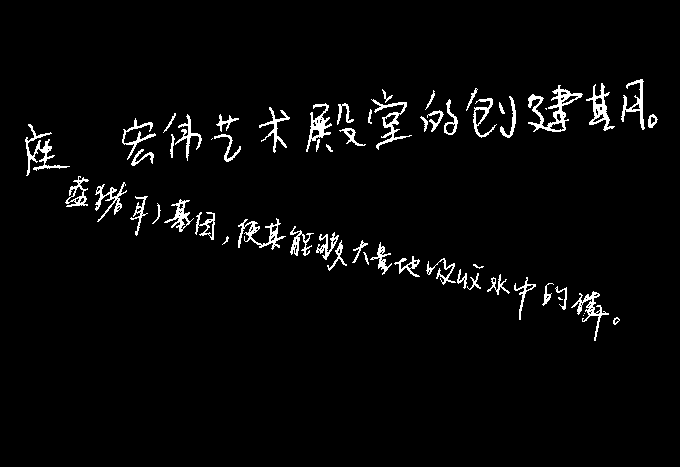 座 宏伟艺术殿堂的创建期。
蓝猪耳)基因,使其能够大量地吸收水中的磷。